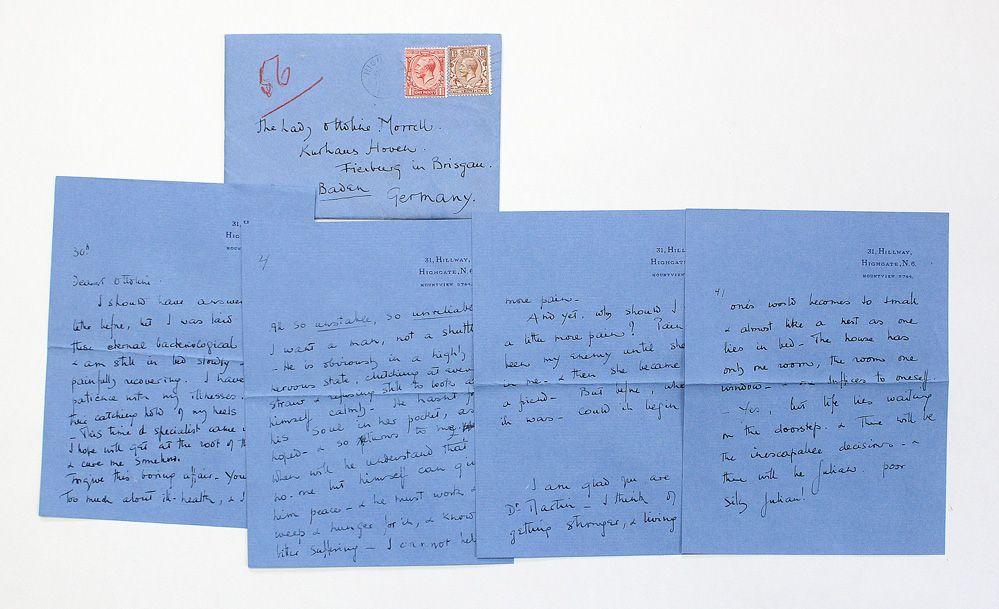 56
HIGH
The Lady Ottoline Morrell.
Kurhaus Hoven.
Freiburg in Brisgau.
Baden
Germany.
31,
HIGH
MOUN
30th
Dearest Ottoline
I should have answe
letter before, but I was laid
these eternal bacteriological
& am still in bed slowly
painfully recovering. I have
patience with my illnesses.
their catching hold of my heels
- This time a specialist came
I hope will get at the root of th
& cure me somehow.
Forgive this boring affair - You
too much about ill-health, & I
2/
31, HILLWAY,
HIGHGATE, N.6.
MOUNTVIEW 2794.
so unstable, so unreliable
I want a man, not a shutt
- He is obviously in a highly
nervous state, clutching at every
straw & refusing still to look a
himself calmly - He hasn't
his soul in her pocket, as
hoped - & so returns to my
When will he understand that
no-one but himself can gi
him peace - & he must work &
weep & hunger for it, & know
bitter suffering - I cannot hel
31, HILL
HIGHGATE,
MOUNTVIEW
more pain -
And yet, why should I
a little more pain? Pain
been my enemy until she
in me - & then she became
a friend - But before, whe
it was - could it begin
I am glad you are
Dr. Martin - I think of
getting stronger, & living
4/
31, HILLWAY,
HIGHGATE, N.6.
MOUNTVIEW 2794.
one's world becomes so small
& almost like a nest as one
lies in bed - The house has
only one room, the room one
window - & one suffices to oneself
- Yes, but life lies waiting
on the doorstep. & there will be
the inescapable decisions - &
there will be Julian. poor
silly Julian!